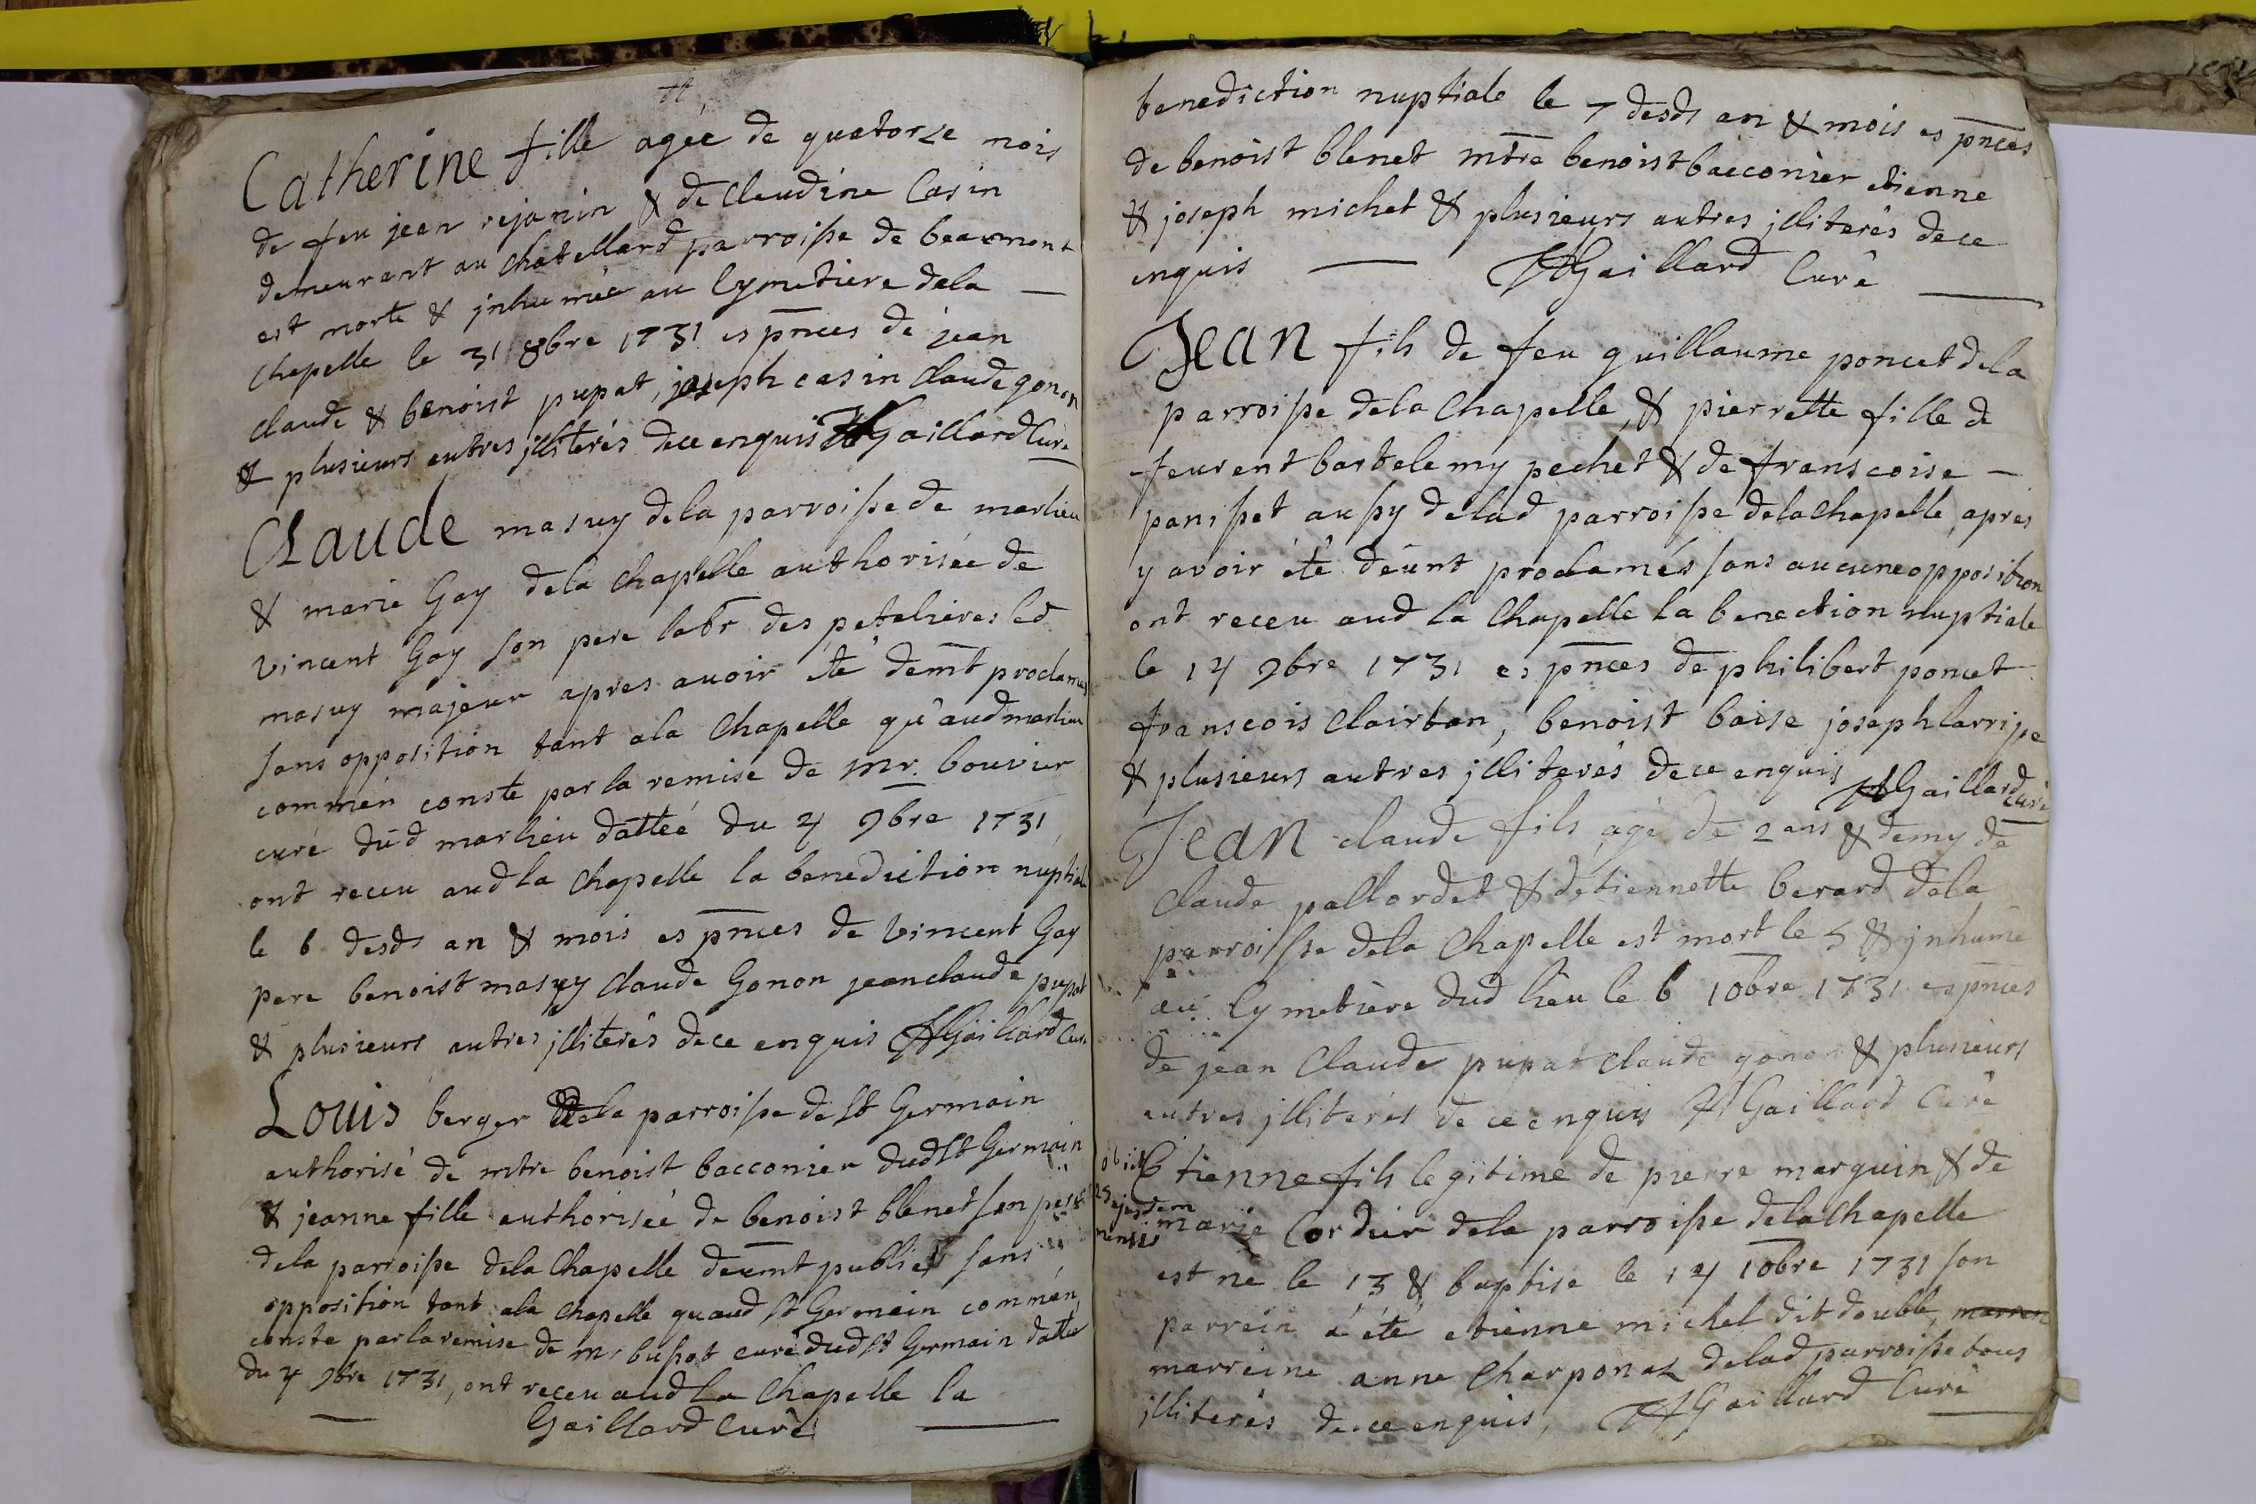 Catherine fille agée de quatorze mois
de feu jean rejanin & de claudine Casin
demeurant au chatellard parroisse de beaumont
est morte & jnhumée au Cymetiere dela
chapelle le 31 8bre 1731 es pnces de jean
claude & benoist pupat, joseph casin claude gonon
& plusieurs autres jlliterés dece enquis Gaillard Curé
CLaude masuy dela parroisse de marlieu
& marie Gay dela chapelle authorisée de
vincent Gay son pere labr des petelieres led
masuy majeur apres auoir été demt proclamés
sans opposition tant ala Chapelle qu'aud marlieu
commen conste par la remise de mr. bouvier
curé dud marlieu dattée du 4 9bre 1731
ont receu aud la chapelle la benediction nuptiale
le 6 desds an & mois es pnces de vincent Gay
pere benoist masuy claude Gonon jean claude pupat
& plusieurs autres jlliterés dece enquis Gaillard Curé
Louis berger dela parroisse de St Germain
authorisé de mtre benoist bacconier dud St Germain
& jeanne fille authorisée de benoist blenet son pere
dela parroisse dela Chapelle deumt publies sans
opposition tant ala chapelle quaud St Germain commen
conste parlaremise de mr bussot curé dud St Germain dattée
du 4 9bre 1731, ont receu aud La Chapelle la
Gaillard Curé
benediction nuptiale le 7 desds an & mois es pnces
de benoist blenet mtre benoist bacconier etienne
& joseph michet & plusieurs autres jlliterés dece
enquis Gaillard Curé
Jean fils de feu guillaume poncet dela
parroisse dela Chapelle, & pierrette fille d
feurent bartelemy pechet & de franscoise
panisset aussy delad parroisse delachapelle, apres
y avoir été deünt proclamés sans aucune opposition
ont receu aud la Chapelle la benection nuptiale
le 14 9bre 1731 es pnces de philibert poncet
franscois clairtan, benoist baise joseph larripe
& plusieurs autres jlliterés dece enquis Gaillard curé
Jean claude fils agé de 2 ans & demy de
Claude pallordet & detiennette berard dela
parroisse dela Chapelle est mort le 5 & jnhumé
au Cymetière dud lieu le 6 10bre 1731 es pnces
de jean Claude pupat claude gonon & plusieurs
autres jlliterés de ce enquis Gaillard Curé
obiit
25 ejusdem
mensis
Etienne fils legitime de pierre marguin & de
marie Cordeir dela parroisse delachapelle
est né le 13 & baptisé le 14 10bre 1731 son
parrein a été etienne michel dit double, marren
marreine anne Charponaz delad parroisse tous
jlliterés de ce enquis, Gaillard Curé